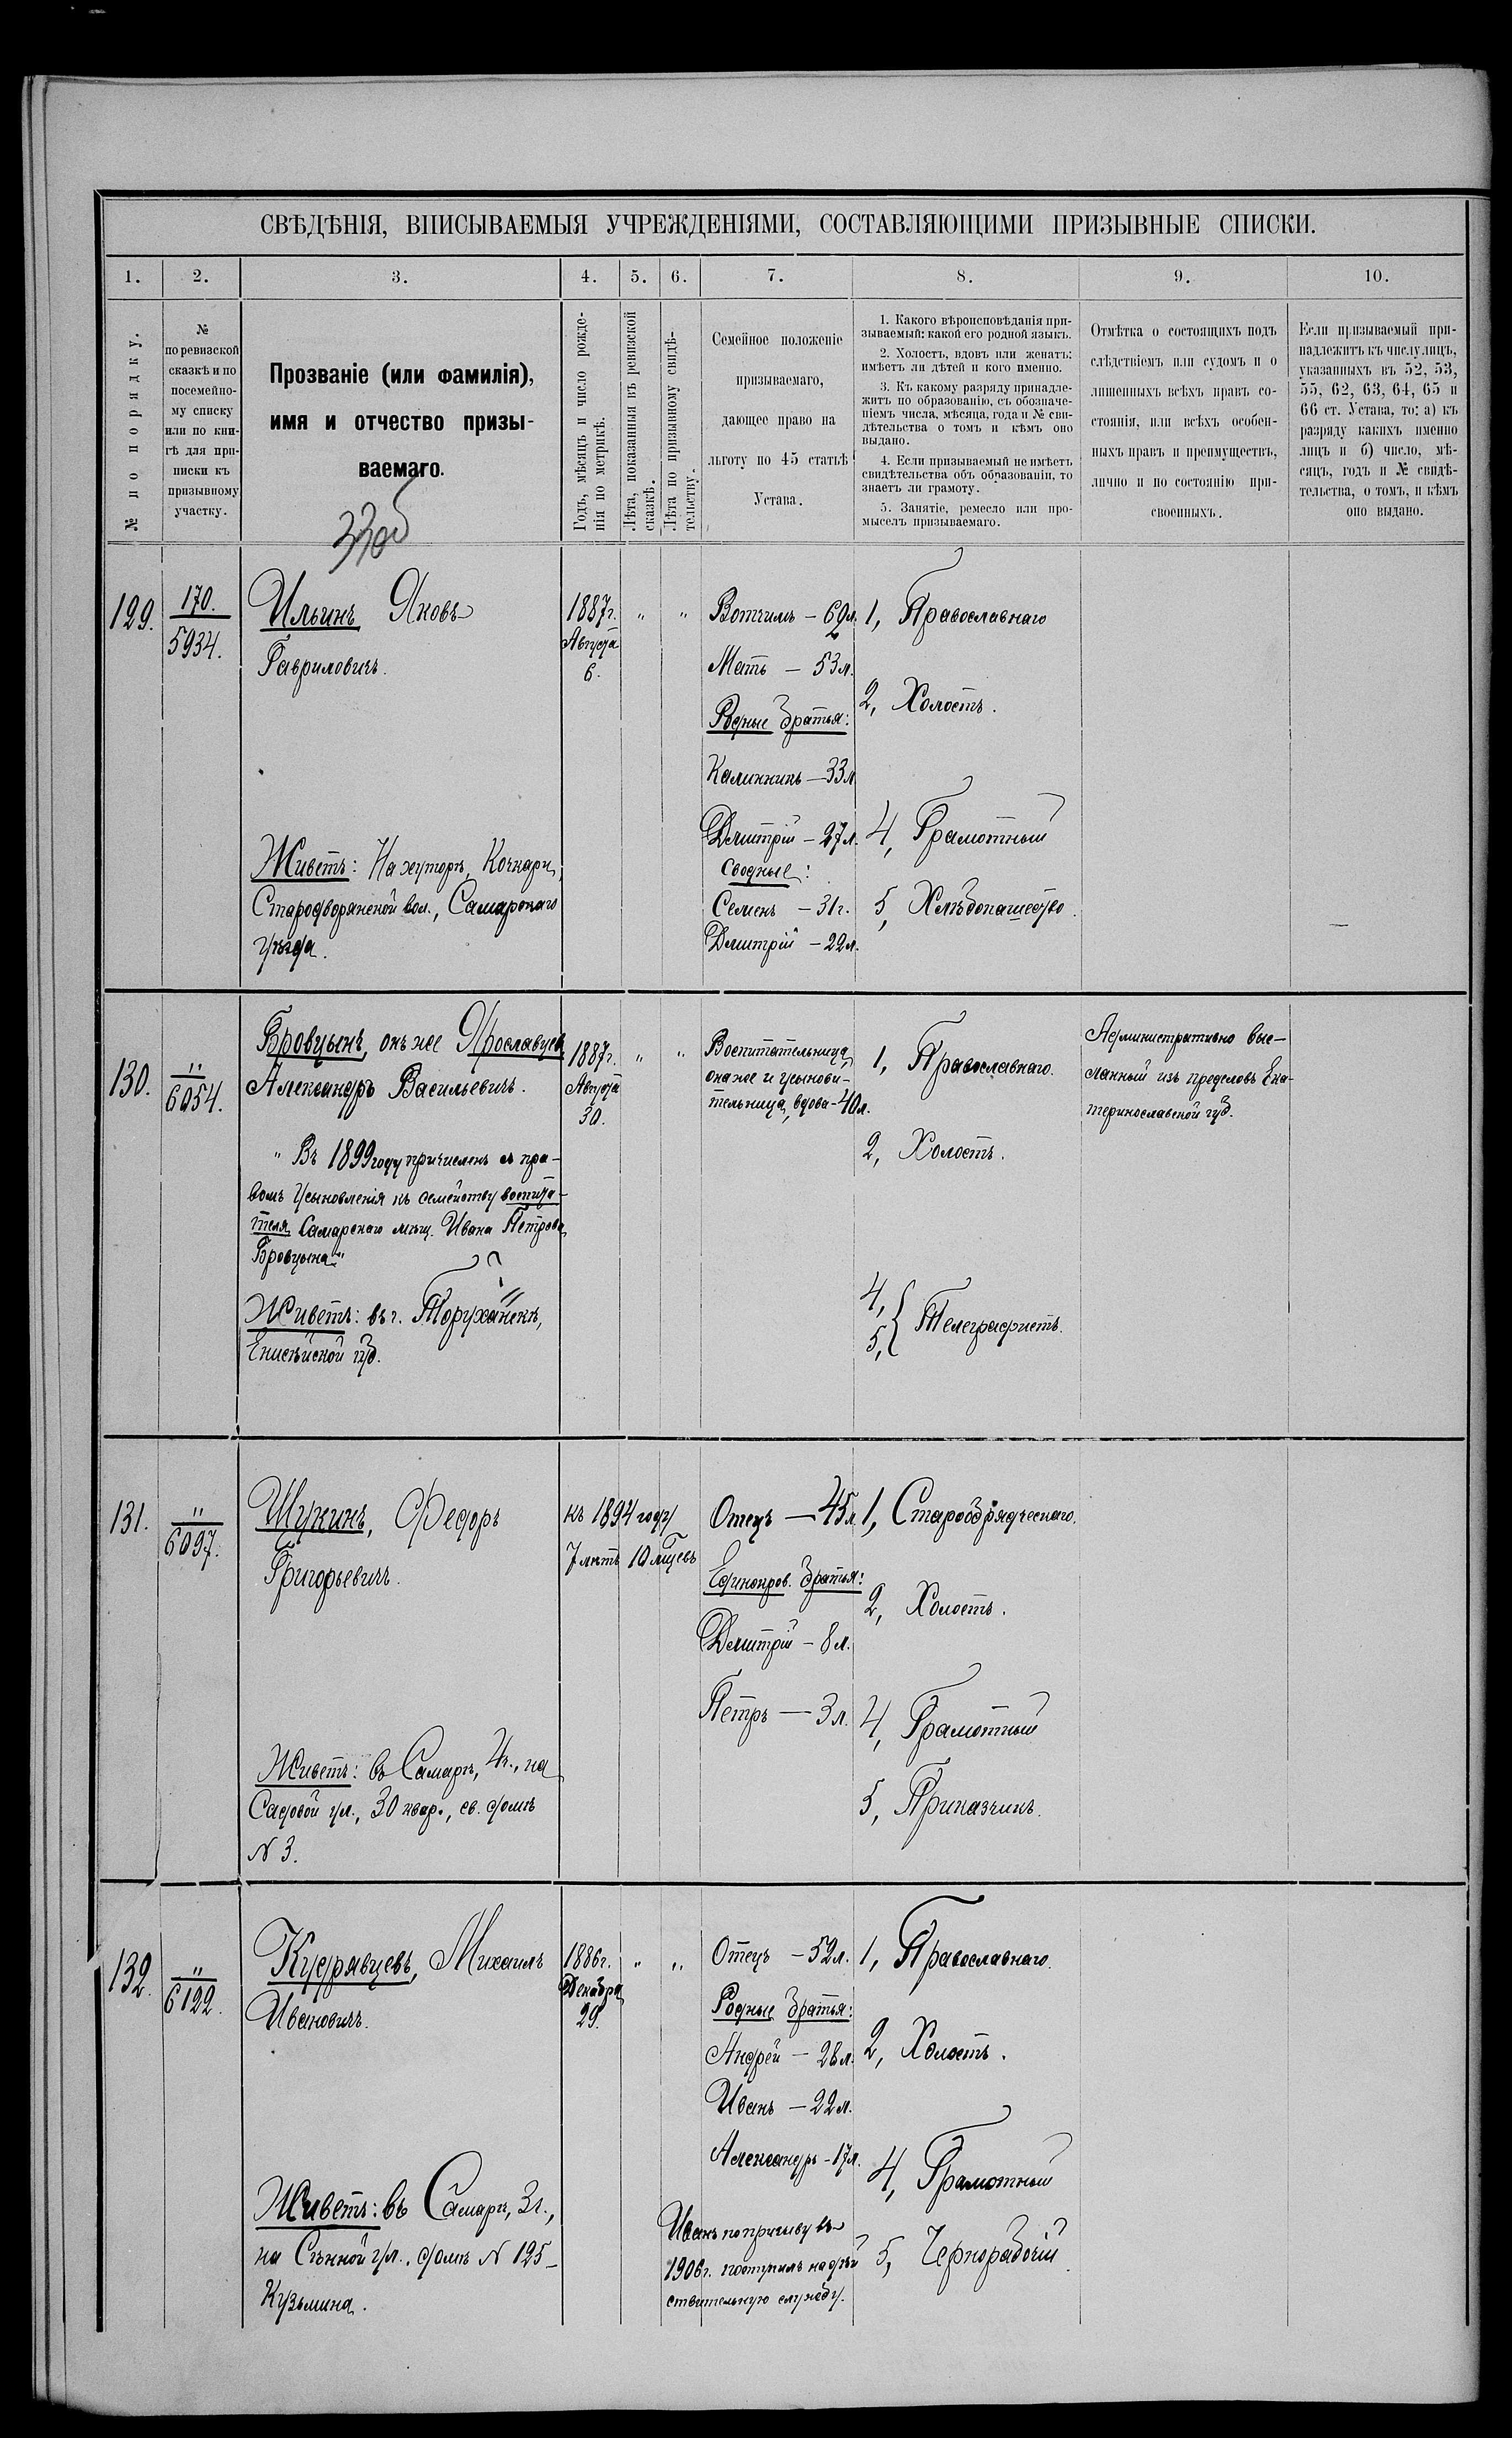 СВѢДѢНІЯ, ВПИСЫВАЕМЫЯ УЧРЕЖДЕНІЯМИ, СОСТАВЛЯЮЩИМИ ПРИЗЫВНЫЕ СПИСКИ.
1.
2.
3.
4.
5.
6.
7.
8.
9.
10.
№ по порядку.
№
по ревизской
сказкѣ и по
посемейно-
му списку
или по кни-
гѣ для при-
писки къ
призывному
участку.
Прозваніе (или фамилія),
имя и отчество призы-
ваемаго.
Годъ, мѣсяцъ и число рожде-
нія по метрикѣ.
Лѣта, показанныя въ ревизской
сказкѣ.
Лѣта по призывному свидѣ-
тельству.
Семейное положеніе
призываемаго,
дающее право на
льготу по 45 статьѣ
Устава.
1. Какого вѣроисповѣданія при-
зываемый: какой его родной языкъ.
2. Холостъ, вдовъ или женатъ:
имѣетъ ли дѣтей и кого именно.
3. Къ какому разряду принадле-
житъ по образованію, съ обозначе-
ніемъ числа, мѣсяца, года и № сви-
дѣтельства о томъ и кѣмъ оно
выдано.
4. Если призываемый не имѣетъ
свидѣтельства объ образованіи, то
знаетъ ли грамоту.
5. Занятіе, ремесло или про-
мыселъ призываемаго.
Отмѣтка о состоящихъ подъ
слѣдствіемъ или судомъ и о
лишенныхъ всѣхъ правъ со-
стоянія, или всѣхъ особен-
ныхъ правъ и преимуществъ,
лично и по состоянію при-
своенныхъ.
Если призываемый при-
надлежитъ къ числу лицъ,
указанныхъ въ 52, 53,
55, 62, 63, 64, 65 и
66 ст. Устава, то: а) къ
разряду какихъ именно
лицъ и б) число, мѣ-
сяцъ, годъ и № свидѣ-
тельства, о томъ, и кѣмъ
оно выдано.
129.
170.
5934.
Ильинъ Яковъ
Гавриловичъ.
Живетъ: На хуторѣ, Кочкари,
Стародворянской вол., Самарскаго
уѣзда.
1887г.
Августа
6.
" "
Вотчимъ – 62л.
Мать – 53л.
Родные братья:
Калинникъ – 33л.
Дмитрій – 27л.
Сводные:
Семенъ – 31г.
Дмитрій – 22л.
1, Православнаго
2, Холостъ.
4, Грамотный
5, Хлѣбопашество.
130.
"
6054.
Бровцынъ, онъ же Ярославцев
Александръ Васильевичъ.
" Въ 1899 году причисленъ съ пра-
вомъ усыновленія къ семейству воспита-
теля Самарскаго мѣщ. Ивана Петрова
Бровцына"
Живетъ: въ г. Торуханскѣ,
Енисейской губ.
1887г.
Августа
30.
" "
Воспитательница,
она же и усынови-
тельница, вдова – 40л.
1, Православнаго.
2, Холостъ.
4,
5, { Телеграфистъ.
Административно выс-
ланный изъ предѣловъ Ека-
теринославской губ.
131.
"
6097.
Щукинъ, Федоръ
Григорьевичъ.
Живетъ: въ Самарѣ, 4ч., на
Садовой ул., 30 квар., св. домѣ
N 3.
къ 1894 году
7 лѣтъ 10 мѣцевъ
Отецъ – 45л.
Единокров. братья:
Дмитрій – 8л.
Петръ – 3л.
1, Старообрядческаго.
2, Холостъ.
4, Грамотный
5, Приказчикъ.
132.
"
6122.
Кудрявцевъ, Михаилъ
Ивановичъ.
Живетъ: въ Самарѣ, 3ч.,
на Сѣнной ул., домъ N 125
Кузьмина.
1886г.
Декабря
29.
" "
Отецъ – 52л.
Родные братья:
Андрей – 28л.
Иванъ – 22л.
Александръ – 17л.
Иванъ по призыву въ
1906г. поступилъ на дѣй
ствительную службу.
1, Православнаго.
2, Холостъ.
4, Грамотный
5, Чернорабочій.